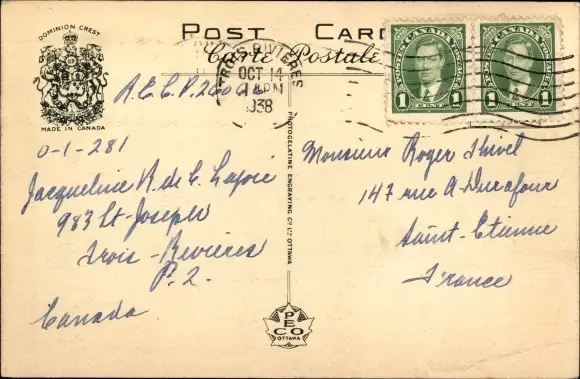 DOMINION CREST
MADE IN CANADA
POST CARD
Carte Postale
TROIS RIVIERES
OCT 14
1 PM
1938
POSTES CANADA POSTAGE
1 CENT 1
POSTES CANADA POSTAGE
1 CENT 1
R.E.C.P. 260
0-1-281
Jacqueline R. de C. Lajoie
983 St-Joseph
Trois-Rivières
P. 2.
Canada
PHOTOGELATINE ENGRAVING CO. LTD. OTTAWA
PECO
OTTAWA
Monsieur Roger
147 rue A. Durafour
Saint-Etienne
France